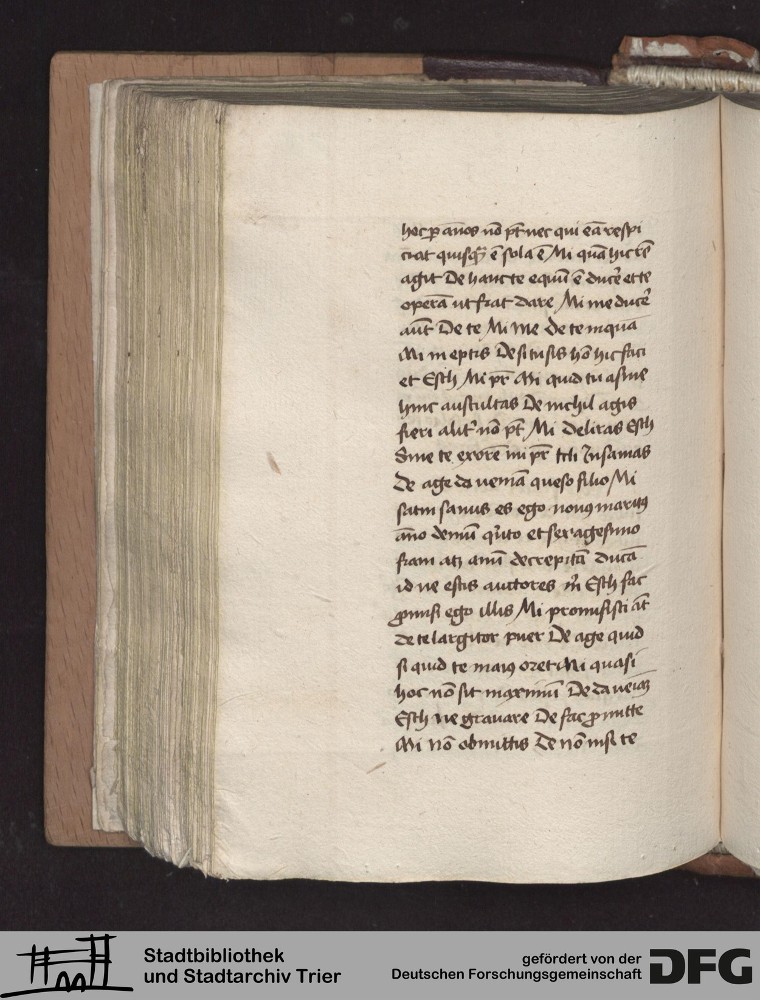 hoc p annos nō pt nec qui eā respi
ciat quisq̄ ē sola ē Mi quā hic rē
agit De hanc te equū ē ducē et te
operā ut fiat dare Mi me ducē
aūt De te Mi me de te inquā
Mi ineptis De si tu sis hō hic faci
et Esch Mi pr̄ Mi quid tu asine
huic auscultas De nichil agis
fieri alit̄ nō pt Mi deliras Esch
Sine te exorē mi pr̄ Mi Insanias
De age da veniā queso filio Mi
satin sanus es ego novus maritus
āno demū quīto et sexagesimo
fiam atq anū decrepitā ducā
id ne estis auctores m̄ Esch fac
promisi ego illis Mi promisisti āt
de te largitor puer De age quid
si quid te maius oret Mi quasi
hoc nō sit maximū De da veniā
Esch ne gravare De fac promitte
Mi nō obmittis De nō nisi te
Stadtbibliothek
und Stadtarchiv Trier
gefördert von der
Deutschen Forschungsgemeinschaft
DFG